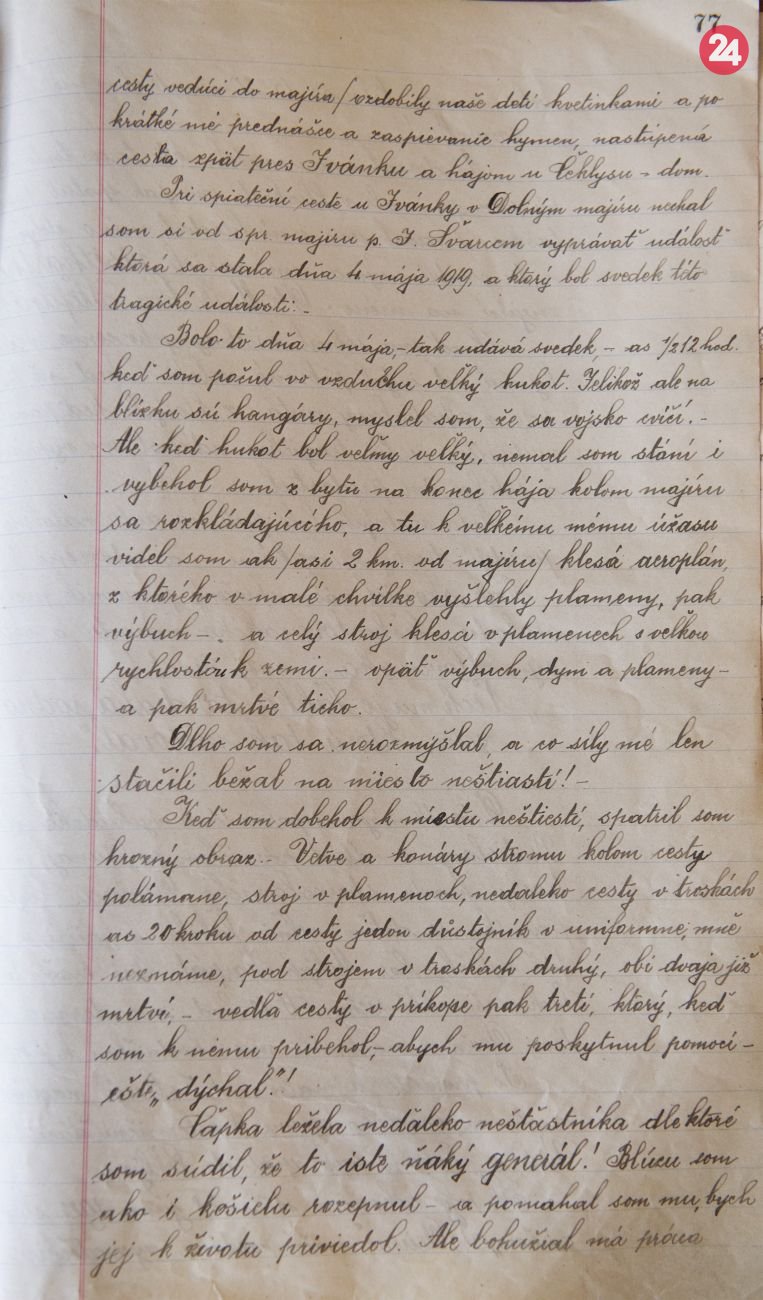 77
24
cesty vedúci do majíra /ozdobily naše deti kvetinkami a po
krátké mé prednášce a zaspievanie hymen, nastúpená
cesta zpät pres Ivánku a hájom u Čéklysu – dom.
Pri spiateční ceste u Ivánky v Dolným majíru nechal
som si od spr. majiru p. J. Švarcem vyprávať událosť
ktorá sa stala dňa 4 mája 1919, a ktorý bol svedek této
tragické události: –
Bolo to dňa 4 mája, – tak udává svedek, – as 1/2 12 hod.
keď som počul vo vzduchu veľký hukot. Jelikož ale na
blízku sú hangáry, myslel som, že sa vojsko cvičí. –
Ale keď hukot bol veľmy veľký, nemal som stání i
vybehol som z bytu na konec hája kolom majíru
sa rozkládajúcóho, a tu k veľkému mému úžasu
videl som ak /asi 2 km. od majíru/ klesá aeroplán,
z ktorého v malé chvilke vyšlehly plameny, pak
výbuch – . a celý stroj klesá v plamenech s veľkou
rychlosťou k zemi. – opäť výbuch, dym a plameny –
a pak mrtvé ticho.
Dlho som sa nerozmýšlal, a co síly mé len
stačili bežal na miesto neštiastí! –
Keď som dobehol k miestu neštiestí, spatril som
hrozný obraz. – Vetve a konáry stromu kolom cesty
polámane, stroj v plamenoch, nedaleko cesty v troskách
as 20 kroku od cesty jedon důstojník v uniformne, mně
neznáme, pod strojem v troskách druhý, obi dvaja již
mrtví, – vedľa cesty v príkope pak tretí, ktorý, keď
som k nemu pribehol, – abych mu poskytnul pomoci –
ešte „dýchal"!
Čápka ležela nedaleko neštástníka dle ktoré
som súdil, že to iste ňáký generál! Blúzu som
ako i košielu rozepnul – a pomahal som mu, bych
jej k životu priviedol. Ale bohužial má práca